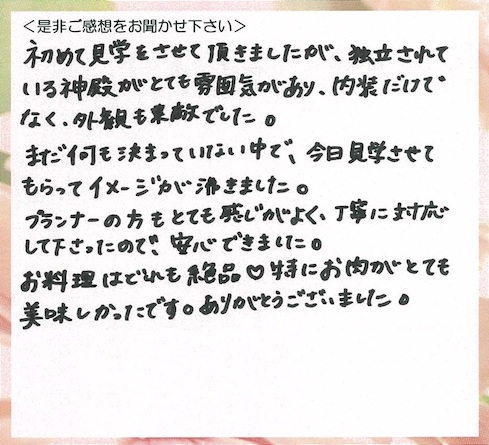 ＜是非ご感想をお聞かせ下さい＞
初めて見学をさせて頂きましたが、独立されて
いる神殿がとても雰囲気があり、内装だけで
なく、外観も素敵でした。
まだ何も決まっていない中で、今日見学させて
もらってイメージが沸きました。
プランナーの方もとても感じがよく、丁寧に対応
して下さったので、安心できました。
お料理はどれも絶品♡特にお肉がとても
美味しかったです。ありがとうございました。